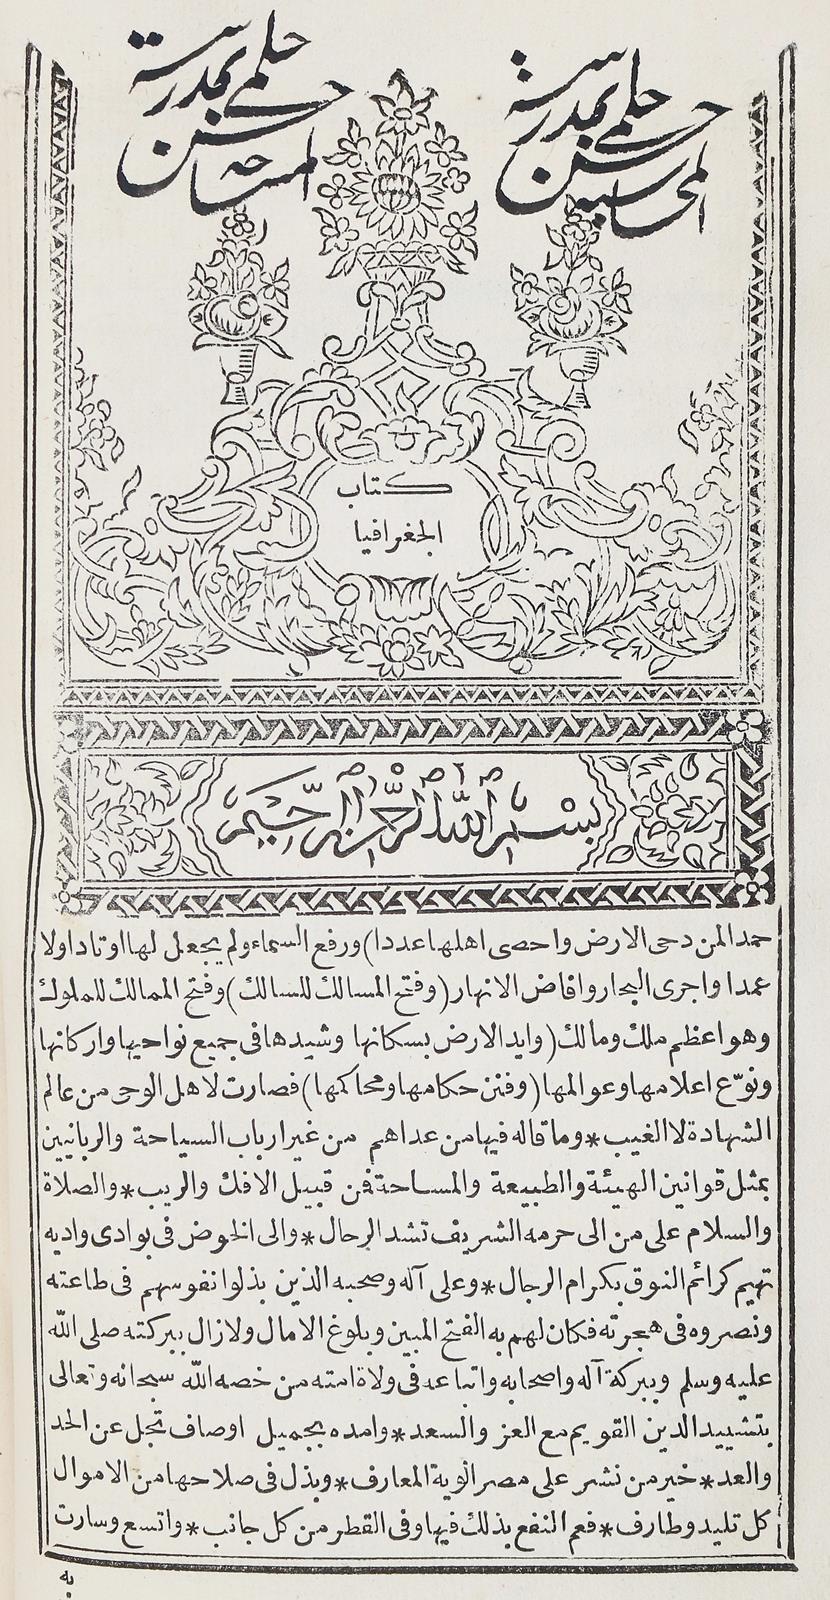 حسن حلمى بمدرسة
المحاسبه
حسن حلمى بمدرسة
المساحه
كتاب
الجغرافيا
بسم الله الرحمن الرحيم
حمدا لمن دحى الارض واحصى اهلها عددا) ورفع السماء ولم يجعل لها اوتادا ولا
عمدا واجرى البحار وافاض الانهار (وفتح المسالك للسالك) وفتح الممالك للملوك
وهو اعظم ملك ومالك (وايد الارض بسكانها وشيدها فى جميع نواحيها واركانها
ونوّع اعلامها وعوالمها (وفنن حكامها ومحاكمها) فصارت لاهل الوحى من عالم
الشهادة لا الغيب * وما قاله فيها من عداهم من غير ارباب السياحة والربانيين
بمثل قوانين الهيئة والطبيعة والمساحة فمن قبيل الافك والريب * والصلاة
والسلام على من الى حرمه الشريف تشد الرحال * والى الخوض فى بوادى واديه
تهيم كرائم النوق بكرام الرجال * وعلى آله وصحبه الذين بذلوا نفوسهم فى طاعته
ونصروه فى هجرته فكان لهم به الفتح المبين وبلوغ الامال ولا زال ببركته صلى الله
عليه وسلم وببركة آله واصحابه واتباعه فى ولاة امته من خصه الله سبحانه وتعالى
بتشييد الدين القويم مع العز والسعد * وامده بجميل اوصاف تجل عن الحد
والعد * خير من نشر على مصر الوية المعارف * وبذل فى صلاحها من الاموال
كل تليد وطارف * فعم النفع بذلك فيها وفى القطر من كل جانب * واتسع وسارت
به